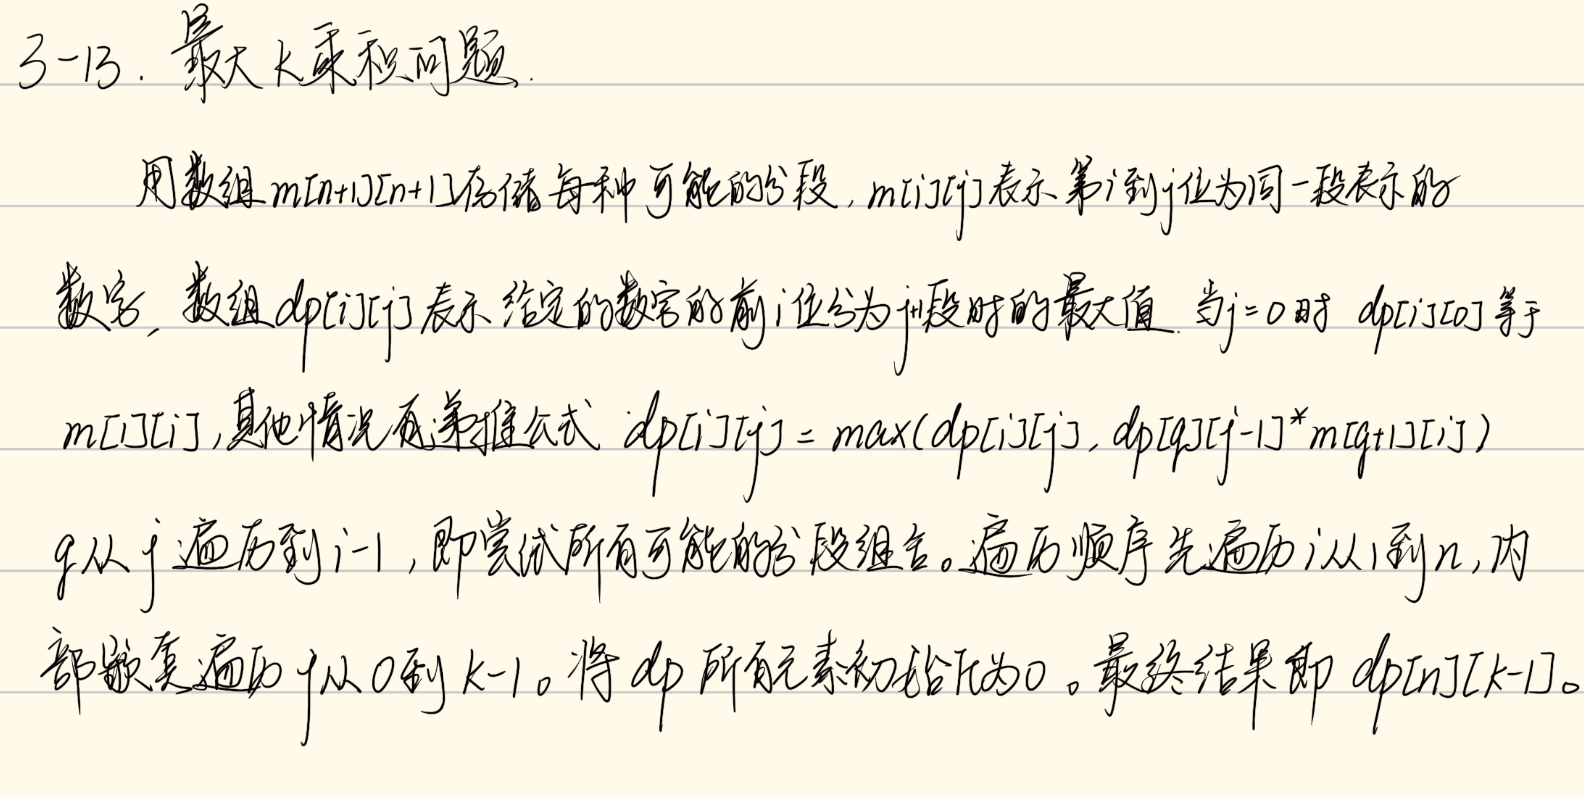 3-13. 最大k乘积问题.
用数组m[n+1][n+1]存储每种可能的分段, m[i][j]表示第i到j位为同一段表示的
数字, 数组dp[i][j]表示给定的数字的前i位分为j+1段时的最大值. 当j=0时 dp[i][0]等于
m[1][i], 其他情况有递推公式 dp[i][j] = max(dp[i][j], dp[q][j-1]*m[q+1][i])
q从j遍历到i-1, 即尝试所有可能的分段组合。遍历顺序先遍历i从1到n, 内
部嵌套遍历j从0到k-1。将dp所有元素初始化为0。最终结果即dp[n][k-1]。